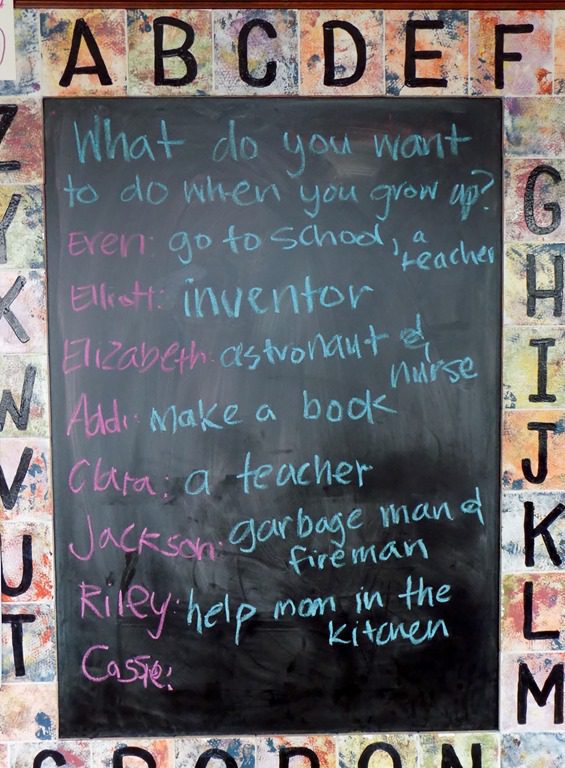 A B C D E F
What do you want
to do when you grow up?
Even: go to school, a
teacher
Elliott: inventor
Elizabeth: astronaut &
nurse
Addi: make a book
Clara: a teacher
Jackson: garbage man &
fireman
Riley: help mom in the
kitchen
Cassie:
G
H
I
J
K
L
M
N
O
P
Q
R
S
T
U
V
W
X
Y
Z